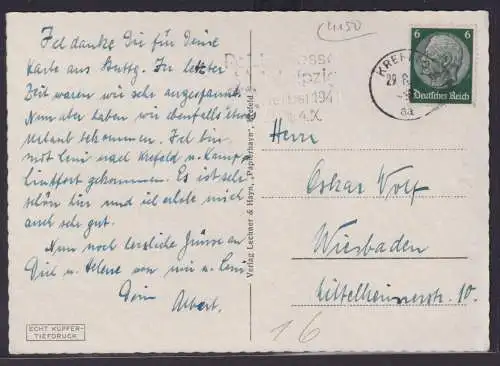 Ich danke Dir für Deine
Karte aus Stuttg. In letzter
Zeit waren wir sehr angespannt.
Nun aber haben wir ebenfalls etwas
Urlaub bekommen. Ich bin
mit Leni nach Krefeld u. Kamp-
lintfort gekommen. Es ist sehr
schön hier und ich erhole mich
auch sehr gut.
Nun noch herzliche Grüsse an
Dich u. Helene von mir u. Leni
Dein Albert.
ECHT KUPFER-
TIEFDRUCK
Verlag Lechner & Hayn, "Papierhayn", Krefeld
4150
KREFELD
29.8.
aa
6 6
Deutsches Reich
Herrn
Oskar Wolf
Wiesbaden
10.
16